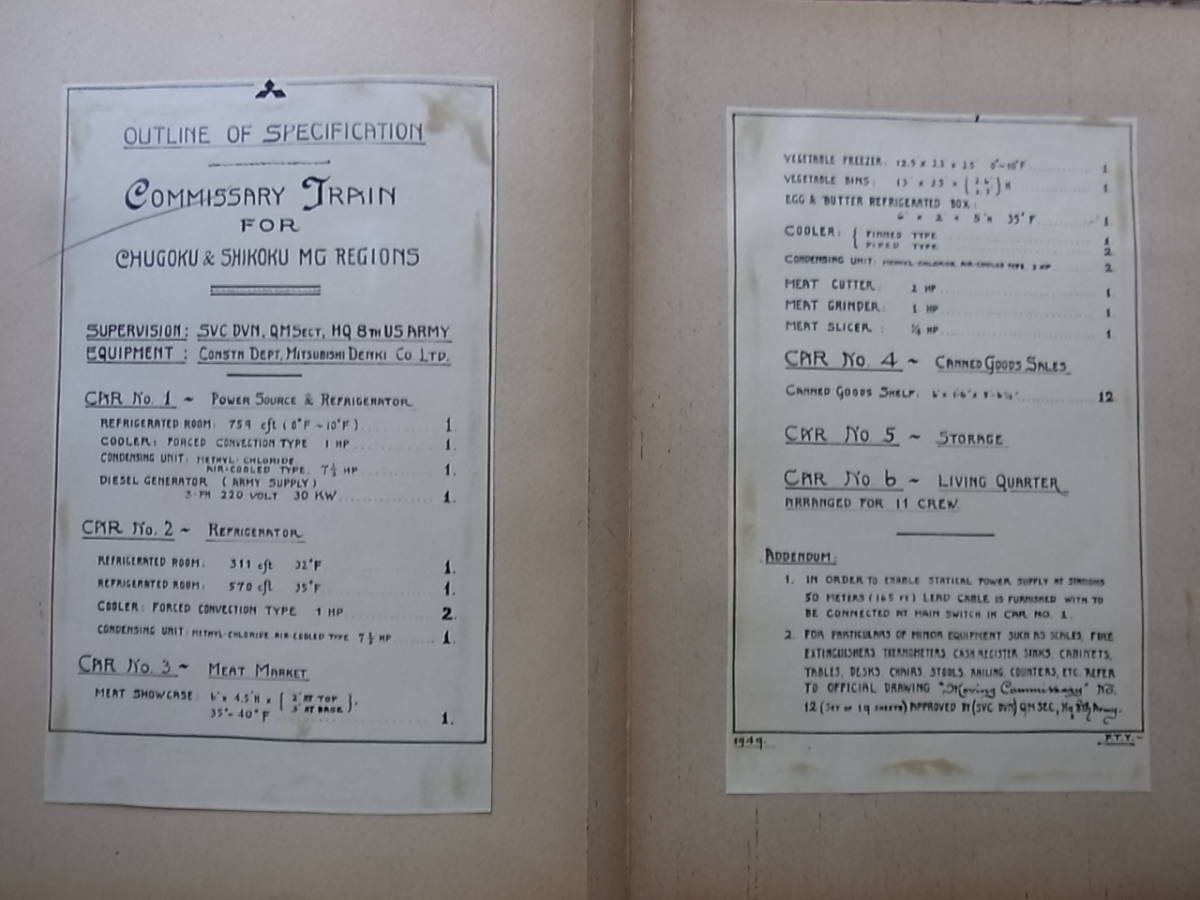 OUTLINE OF SPECIFICATION
COMMISSARY TRAIN
FOR
CHUGOKU & SHIKOKU MG REGIONS
SUPERVISION: SVC DVN, QM SECT, HQ 8TH US ARMY
EQUIPMENT: CONSTN DEPT, MITSUBISHI DENKI CO LTD.
CAR No. 1 ~ POWER SOURCE & REFRIGERATOR
REFRIGERATED ROOM: 759 cft (0°F ~ 10°F) 1.
COOLER: FORCED CONVECTION TYPE 1 HP 1.
CONDENSING UNIT: METHYL-CHLORIDE
AIR-COOLED TYPE. 7½ HP 1.
DIESEL GENERATOR (ARMY SUPPLY)
3-PH 220 VOLT 30 KW 1.
CAR No. 2 ~ REFRIGERATOR
REFRIGERATED ROOM: 311 cft 32°F 1.
REFRIGERATED ROOM: 570 cft 35°F 1.
COOLER: FORCED CONVECTION TYPE 1 HP 2.
CONDENSING UNIT: METHYL-CHLORIDE AIR-COOLED TYPE 7½ HP 1.
CAR No. 3 ~ MEAT MARKET
MEAT SHOWCASE: 6' x 4.5'H x { 2' AT TOP
3' AT BASE }.
35°- 40°F 1.
VEGETABLE FREEZER: 0°~10°F 1.
VEGETABLE BINS: 1.
EGG & BUTTER REFRIGERATED BOX:
6' x 2' x 5'H 35°F 1.
COOLER: { FINNED TYPE 1
PIPED TYPE 2
CONDENSING UNIT: METHYL-CHLORIDE AIR-COOLED TYPE, HP 2.
MEAT CUTTER: HP 1.
MEAT GRINDER: 1 HP 1.
MEAT SLICER: ¼ HP 1.
CAR No. 4 ~ CANNED GOODS SALES
CANNED GOODS SHELF: 12
CAR No 5 ~ STORAGE
CAR No 6 ~ LIVING QUARTER
ARRANGED FOR 11 CREW
ADDENDUM:
1. IN ORDER TO ENABLE STATICAL POWER SUPPLY AT STATIONS
50 METERS (165 FT) LEAD CABLE IS FURNISHED WITH TO
BE CONNECTED AT MAIN SWITCH IN CAR NO. 1.
2. FOR PARTICULARS OF MINOR EQUIPMENT SUCH AS SCALES, FIRE
EXTINGUISHERS, THERMOMETERS, CASH REGISTER, SINKS, CABINETS,
TABLES, DESKS, CHAIRS, STOOLS, RAILING, COUNTERS, ETC. REFER
TO OFFICIAL DRAWING "Moving Commissary" No.
12 (SET OF 19 SHEETS) APPROVED BY (SVC DVN) QM SEC, Hq 8th Army.
1949.
F.T.Y.